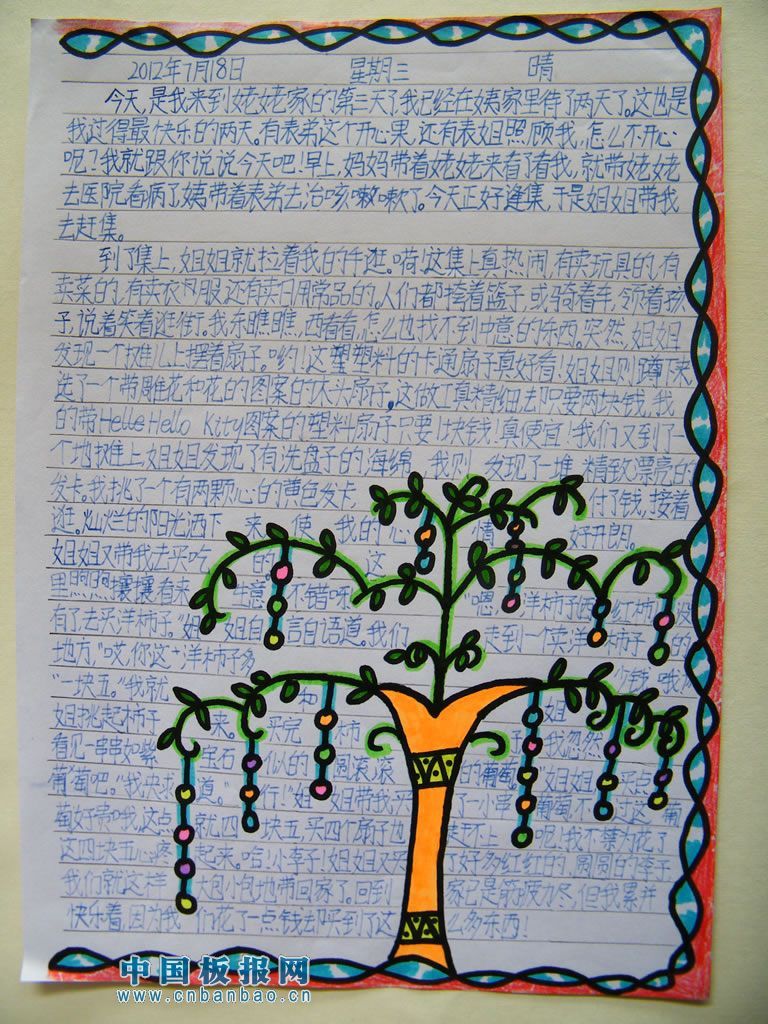 2012年7月18日 星期三 晴
今天,是我来到姥姥家的第三天了我已经在姨家里待了两天了。这也是
我过得最快乐的两天。有表弟这个开心果,还有表姐照顾我,怎么不开心
呢?我就跟你说说今天吧!早上,妈妈带着姥姥来看了看我,就带姥姥
去医院看病了,姨带着表弟去治咳嗽嗽了。今天正好逢集,于是姐姐带我
去赶集。
到了集上,姐姐就拉着我的手逛。嗬!这集上真热闹,有卖玩具的,有
卖菜的,有卖衣服,还有卖日用常品的。人们都挎着篮子或骑着车,领着孩
子,说着笑着逛街。我东瞧瞧,西看看,怎么也找不到中意的东西。突然,姐姐
发现一个摊儿上摆着扇子。哟!这塑塑料的卡通扇子真好看!姐姐则蹲下来
选了一个带雕花和花的图案的大头扇子,这做工真精细,却只要两块钱,我
的带Helle Hello Kitty图案的塑料扇子只要1块钱!真便宜!我们又到了一
个地摊上,姐姐发现了有洗盘子的海绵,我则发现了一堆精致漂亮的
发卡。我挑了一个有两颗心的黄色发卡 付了钱,接着
逛。灿烂的阳光洒下来 使我的心情 好开朗。
姐姐又带我去买吃的 这
里熙熙攘攘,看来生意不错呀 "嗯,洋柿子西红柿 没
有了去买洋柿子。"姐姐自言自语道。我们走到一个卖洋柿子的
地方,"哎,你这洋柿子多 少钱
"一块五。"我就和 姐
姐挑起柿子来。买完柿 我忽然
看见一串串如紫宝石似的圆滚滚的葡萄。 姐姐 买点
葡萄吧。"我央求道。"行!"姐姐带我买了一小串葡萄 不过这葡
萄好贵哦,这点就四块五,买四个扇子也 不上呢!我不禁为花了
这四块五心疼起来。哈!小李子!姐姐又买了好多红红的,圆圆的李子
我们就这样大包小包地带回家了。回到家已是筋疲力尽,但我累并
快乐着,因为我们花了一点钱却买到了这么多东西!
中国板报网
www.cnbanbao.cn